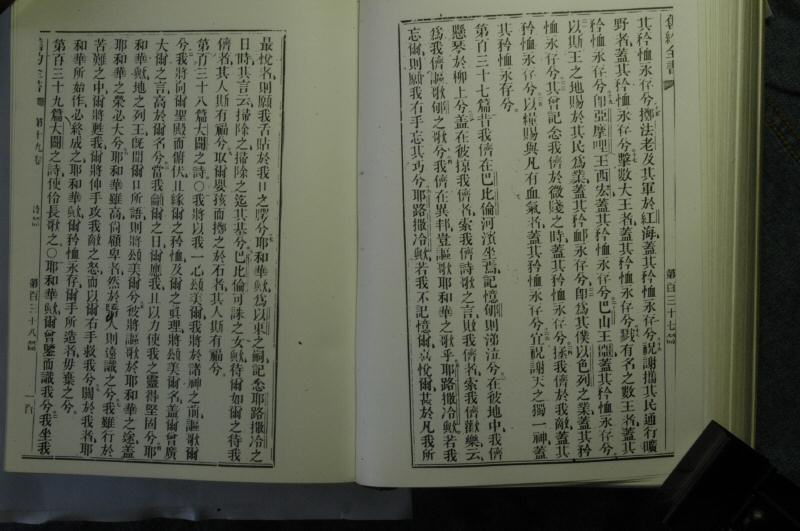 舊約全書
第百三十七篇
其矜恤永存兮擲法老及其軍於紅海蓋其矜恤永存兮祝謝攜其民通行曠
野者蓋其矜恤永存兮擊數大王者蓋其矜恤永存兮戮有名之數王者蓋其
矜恤永存兮卽亞摩哩王西宏蓋其矜恤永存兮巴山王蓋其矜恤永存兮
以斯王之地賜於其民爲業蓋其矜恤永存兮卽爲其僕以色列之業蓋其矜
恤永存兮其曾記念我儕於微賤之時蓋其矜恤永存兮拯我儕於我敵蓋其
矜恤永存兮以糧賜與凡有血氣者蓋其矜恤永存兮宜祝謝天之獨一神蓋
其矜恤永存兮
第百三十七篇昔我儕在巴比倫河濱坐焉記憶郇則涕泣兮在彼地中我儕
懸琴於柳上兮蓋在彼掠我儕者索我儕詩歌之言敗我儕者索我儕歡樂云
爲我儕謳歌郇之歌兮我儕在異邦豈謳歌耶和華之歌乎耶路撒冷歟若我
忘爾則願我右手忘其巧兮耶路撒冷歟若我不記憶爾喜悅爾甚於凡我所
最悅者則願我舌貼於我口之腭兮耶和華歟爲以東之嗣記念耶路撒冷之
日時其言云掃除之掃除之迄其基兮巴比倫可誅之女歟待爾如爾之待我
儕者其人斯有福兮取爾嬰孩而擲之於石者其人斯有福兮
第百三十八篇大闢之詩○我將以我一心頌美爾我將於諸神之前謳歌爾
兮我將向爾聖殿而俯伏且緣爾之矜恤及爾之眞理將頌美爾名蓋爾曾廣
大爾之言高於爾名兮當我籲爾之日爾應我且以力使我之靈得堅固兮耶
和華歟地之列王旣聞爾口所語則將頌美爾兮彼將謳歌於耶和華之途蓋
耶和華之榮必大兮耶和華雖高尚顧卑者然於驕人則遠識之兮我雖行於
苦難之中爾將甦我爾將伸手攻我敵之怒而以爾右手救我兮關於我者耶
和華所始作必終成之耶和華歟爾矜恤永存爾手所造者毋棄之兮
第百三十九篇大闢之詩使伶長歌之○耶和華歟爾曾鑒而識我兮我坐我
舊約全書
第十九卷
詩篇
第百三十八篇
一百